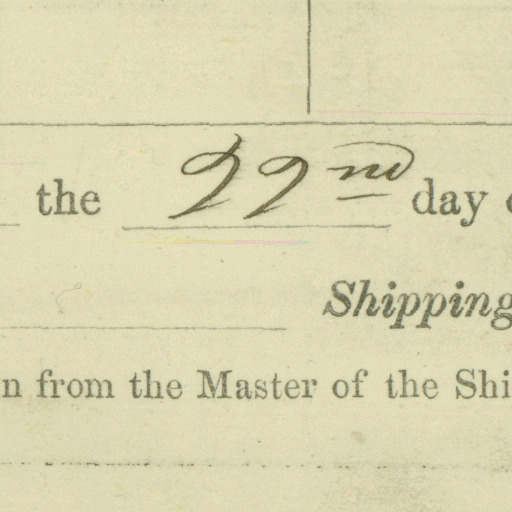 the 22nd day
Shipping
from the Master of the Shi